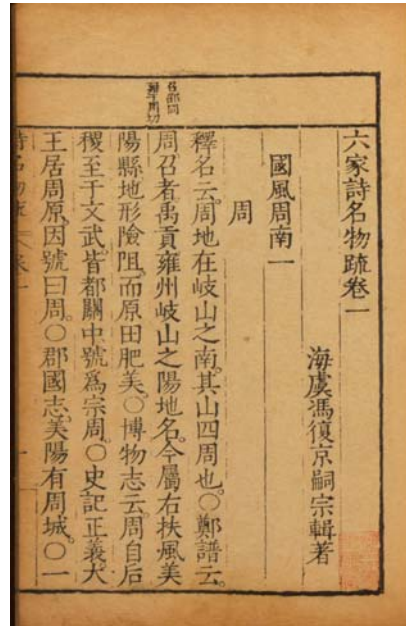 六家詩名物疏卷一
海虞馮復京嗣宗輯著
國風周南一
周
釋名云周地在岐山之南其山四周也○鄭譜云
周召者禹貢雍州岐山之陽地名今屬右扶風美
陽縣地形險阻而原田肥美○博物志云周自后
稷至于文武皆都關中號爲宗周○史記正義犬
王居周原因號曰周○郡國志美陽有周城○一